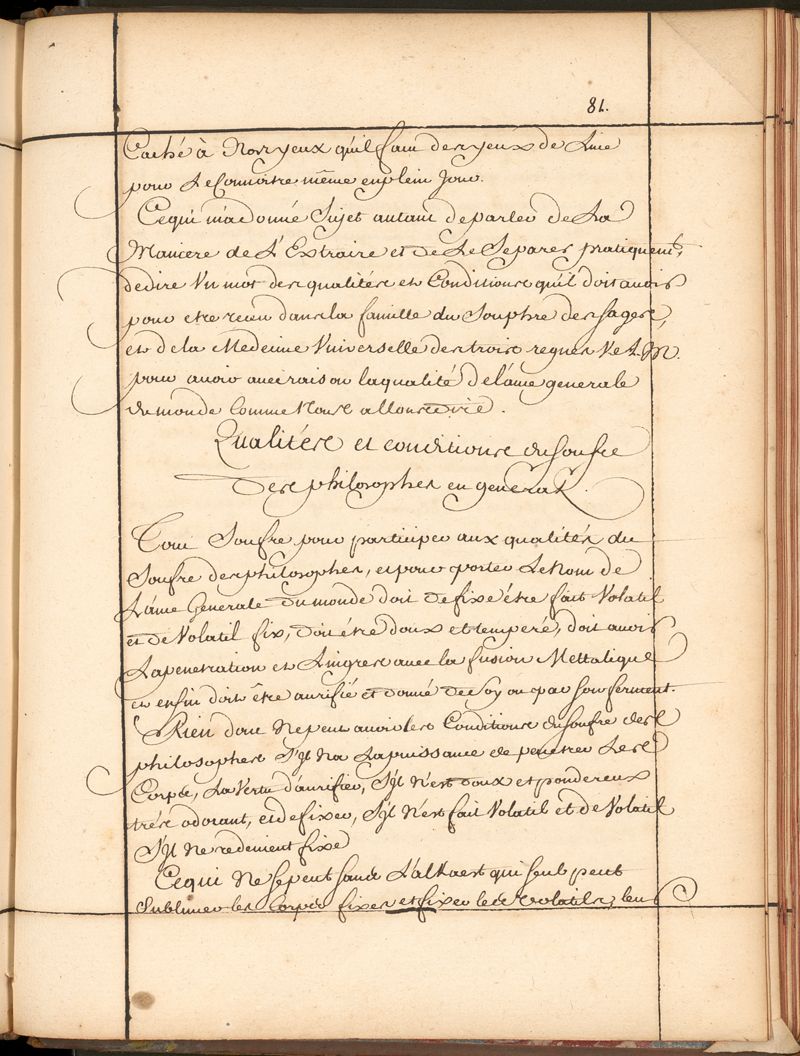 81.
Caché à Nos yeux qu'il faut des yeux de Linx
pour Le Connoitre même en plein jour.
Cequi m'a donné Sujet autant de parler de La
Maniere de L'Extraire et de Le Separer pratiquemt,
de dire Un mot des qualitées et Conditions qu'il doit avoir
pour etre receu dans la famille du Souphre des sages,
et de la Medecine Universelle des trois regnes V. A. M.
pour avoir avec raison la qualité de l'ame generale
du monde Comme Nous allons dire.
Qualitées et conditions du soufre
des philosophes en general.
Tout Soufre pour participer aux qualités du
Soufre des philosophes, et pour porter Le Nom de
L'âme Generale du monde doit de fixe étre fait Volatil
et de Volatil fix, doit étre doux et temperé, doit avoir
La penetration et L'ingres avec la fusion Mettalique
et enfin doit être aurifié et donné de soy ou par son ferment.
Rien donc Ne peut avoir les Conditions du soufre des
philosophes S'jl Na La puissance de penetrer Les
Corps, La Vertu d'aurifier, S'jl N'est doux et pondereux
trés odorant, et de fixe, S'jl N'est fait Volatil et de Volatil
S'jl Ne redevient fixe
Cequi Ne se peut sans L'alkaest qui seul peut
Sublimer les Corps fixes et fixer les Volatils, leur